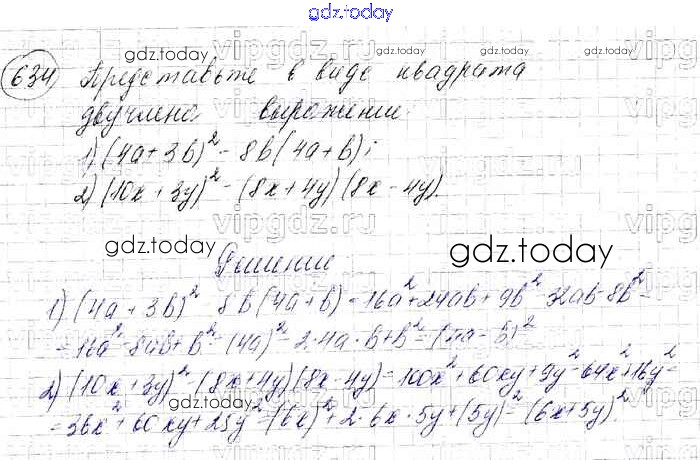 gdz.today
634 Представьте в виде квадрата
двучлена выражении
1) (4a+3b)² - 8b(4a+b);
2) (10x+3y)² - (8x+4y)(8x-4y).
gdz.today
Решение
1) (4a+3b)² 8b(4a+b) = 16a²+24ab+9b²-32ab-8b² =
= 16a²-8ab+b² = (4a)² - 2·4a·b+b² = (4a-b)²
2) (10x+3y)² - (8x+4y)(8x-4y) = 100x²+60xy+9y²-64x²+16y² =
= 36x²+60xy+25y² = (6x)²+2·6x·5y+(5y)² = (6x+5y)².
gdz.today